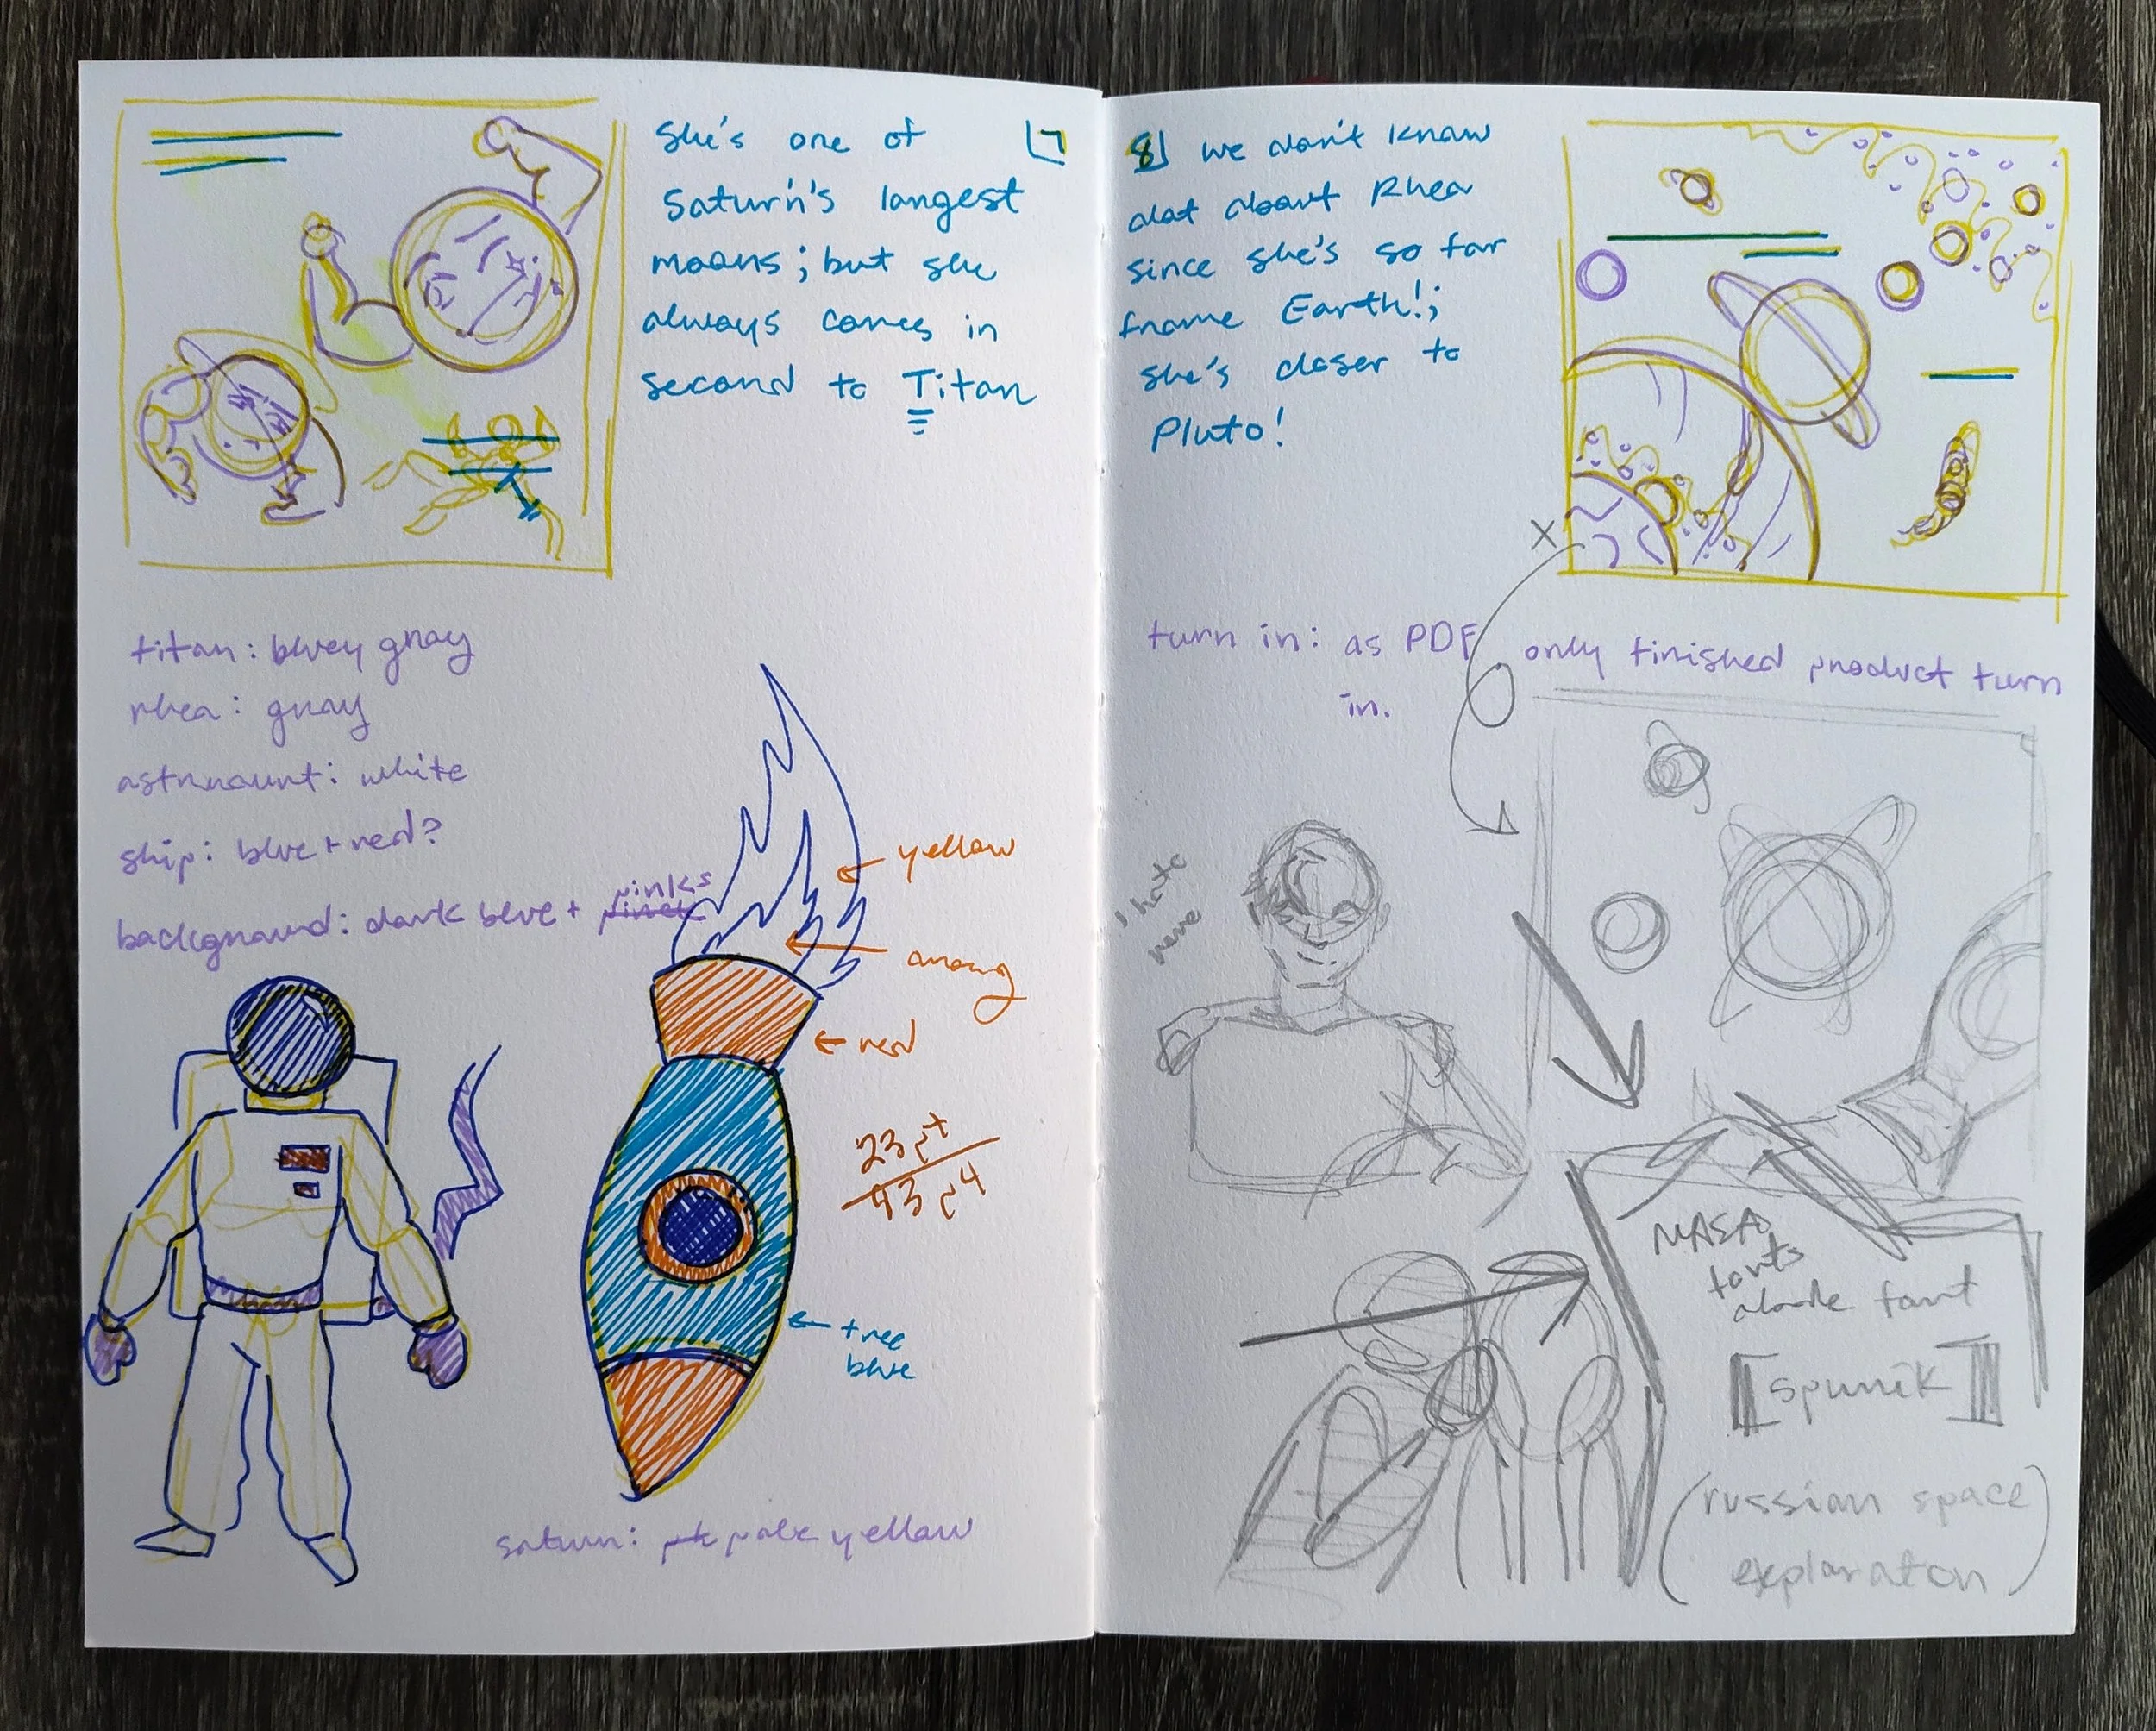 She's one of
Saturn's largest
moons; but she
always comes in
second to Titan
7
titan: bluey gray
rhea: gray
astronaunt: white
ship: blue + red?
background: dark blue + pinks
yellow
orang
red
23pt
93pt
true
blue
saturn: pale yellow
8 we don't know
alot about Rhea
since she's so far
frome Earth!;
she's closer to
Pluto!
X
turn in: as PDF only finished product turn
in.
I hate
NASA
fonts
fant
[spunik]
(russian space
exploraton)